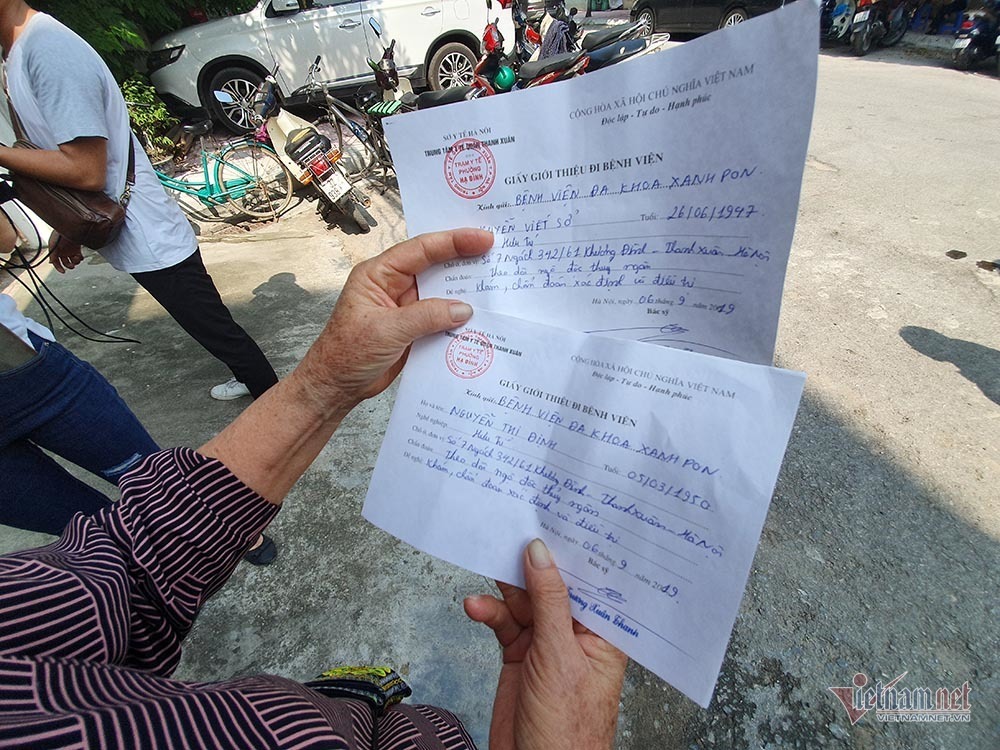 SỞ Y TẾ HÀ NỘI
TRUNG TÂM Y TẾ QUẬN THANH XUÂN
TRẠM Y TẾ
PHƯỜNG
HẠ ĐÌNH
CỘNG HÒA XÃ HỘI CHỦ NGHĨA VIỆT NAM
Độc lập - Tự do - Hạnh phúc
GIẤY GIỚI THIỆU ĐI BỆNH VIỆN
Kính gửi: BỆNH VIỆN ĐA KHOA XANH PON
VIẾT SỞ Tuổi: 26/06/1947
Hưu trí
Chỗ ở, đơn vị Số 7 Ngách 342/61 Khương Đình - Thanh Xuân - Hà Nội
Chẩn đoán: Theo dõi ngộ độc thủy ngân
Đề nghị: Khám, chẩn đoán xác định và điều trị
Hà Nội, ngày 06 tháng 9 năm 2019
Bác sỹ
SỞ Y TẾ HÀ NỘI
TRUNG TÂM Y TẾ QUẬN THANH XUÂN
TRẠM Y TẾ
PHƯỜNG
HẠ ĐÌNH
CỘNG HÒA XÃ HỘI CHỦ NGHĨA VIỆT NAM
Độc lập - Tự do - Hạnh phúc
GIẤY GIỚI THIỆU ĐI BỆNH VIỆN
Kính gửi: BỆNH VIỆN ĐA KHOA XANH PON
Họ và tên: NGUYỄN THỊ ĐÌNH Tuổi: 05/03/1950
Nghề nghiệp: Hưu trí
Chỗ ở, đơn vị Số 7 Ngách 342/61 Khương Đình - Thanh Xuân - Hà Nội
Chẩn đoán: Theo dõi ngộ độc thủy ngân
Đề nghị: Khám, chẩn đoán xác định và điều trị
Hà Nội, ngày 06 tháng 9 năm 2019
Bác sỹ
Trương Xuân Thanh
Vietnam.net
VIETNAMNET.VN